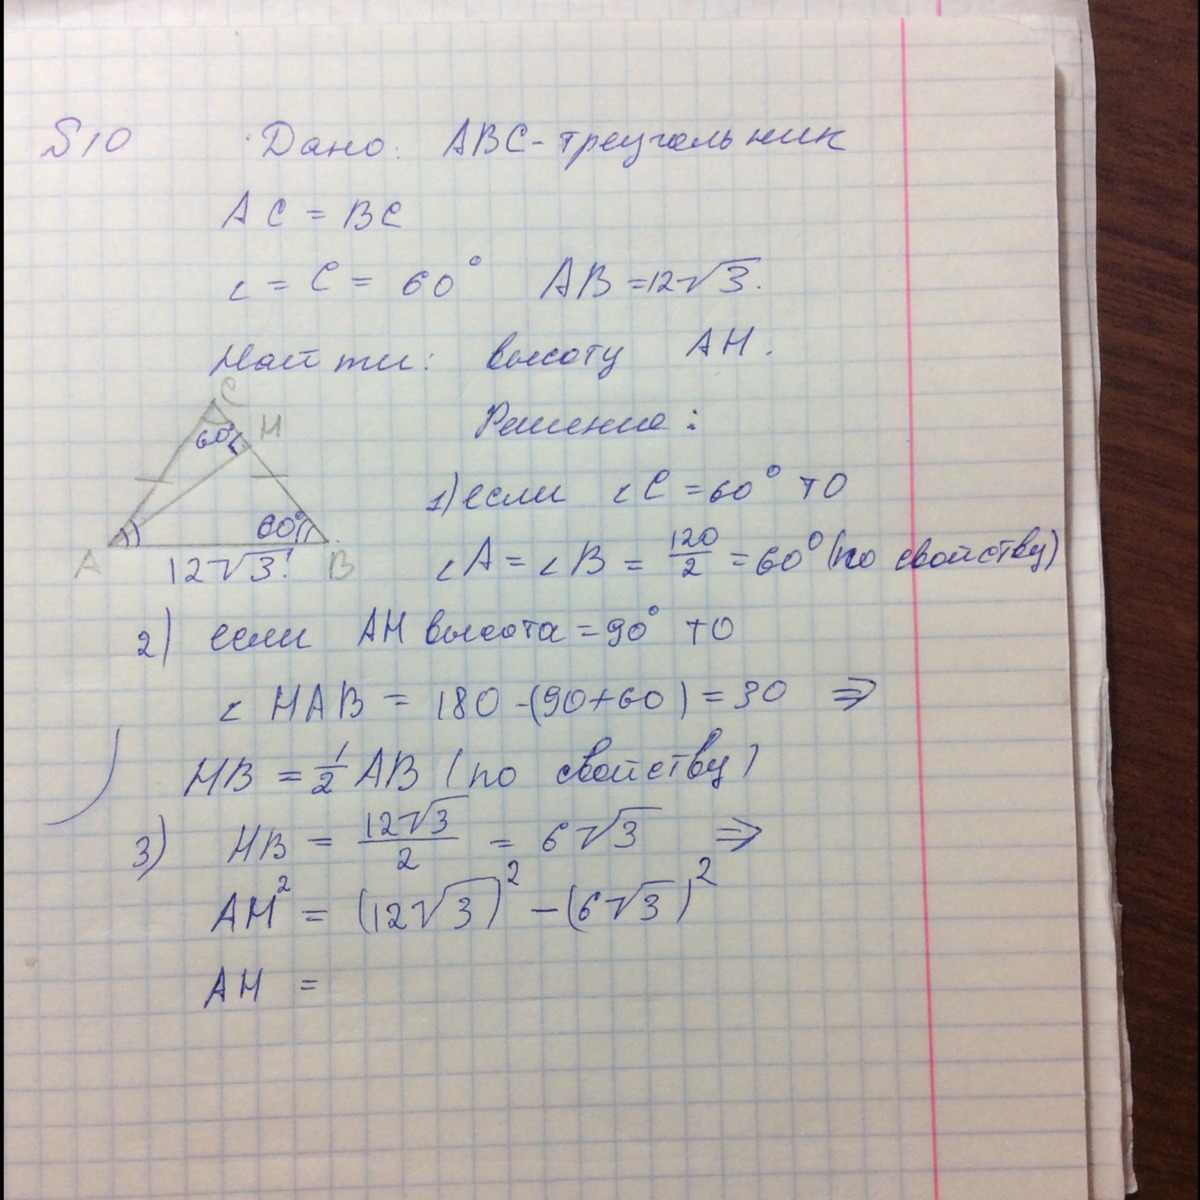 S10 Дано: ABC-треугольник
AC = BC
∠ = C = 60° AB = 12√3.
Найти: высоту AH.
Решение:
C
60°
H
60°
A
12√3!
B
1) если ∠C = 60° то
∠A = ∠B = 120/2 = 60° (по свойству)
2) если AH высота = 90° то
∠HAB = 180 - (90+60) = 30 ⇒
HB = 1/2 AB (по свойству)
3) HB = 12√3/2 = 6√3 ⇒
AH² = (12√3)² - (6√3)²
AH =